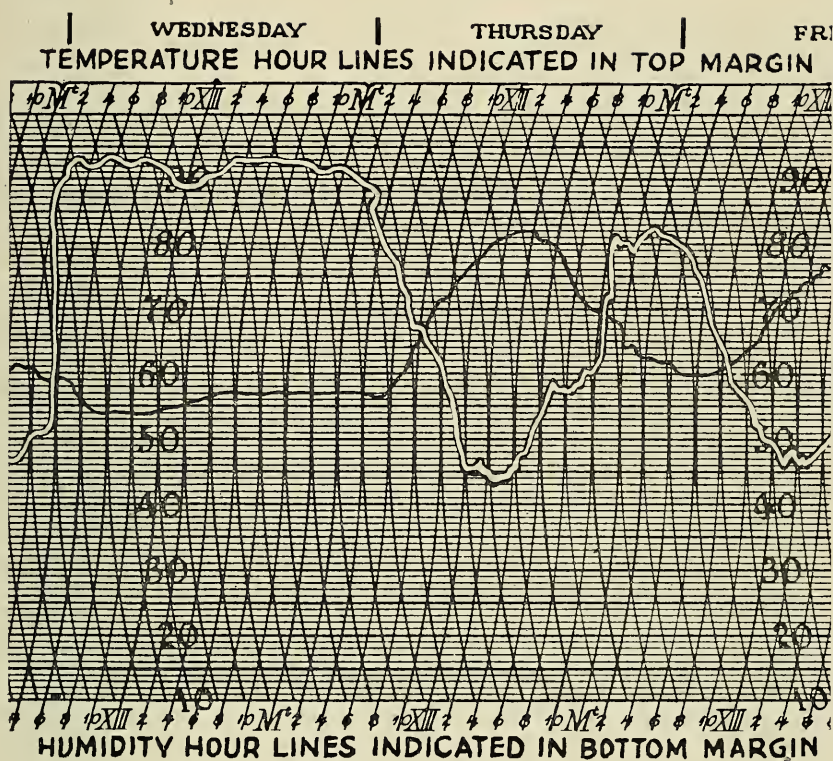 WEDNESDAY THURSDAY FRI
TEMPERATURE HOUR LINES INDICATED IN TOP MARGIN
10 Mt 2 4 6 8 10 XII 2 4 6 8 10 Mt 2 4 6 8 10 XII 2 4 6 8 10 Mt 2 4 6 8 10 XII
90 90
80 80
70 70
60 60
50 50
40 40
30 30
20 20
10 10
4 6 8 10 XII 2 4 6 8 10 Mt 2 4 6 8 10 XII 2 4 6 8 10 Mt 2 4 6 8 10 XII 2 4 6
HUMIDITY HOUR LINES INDICATED IN BOTTOM MARGIN